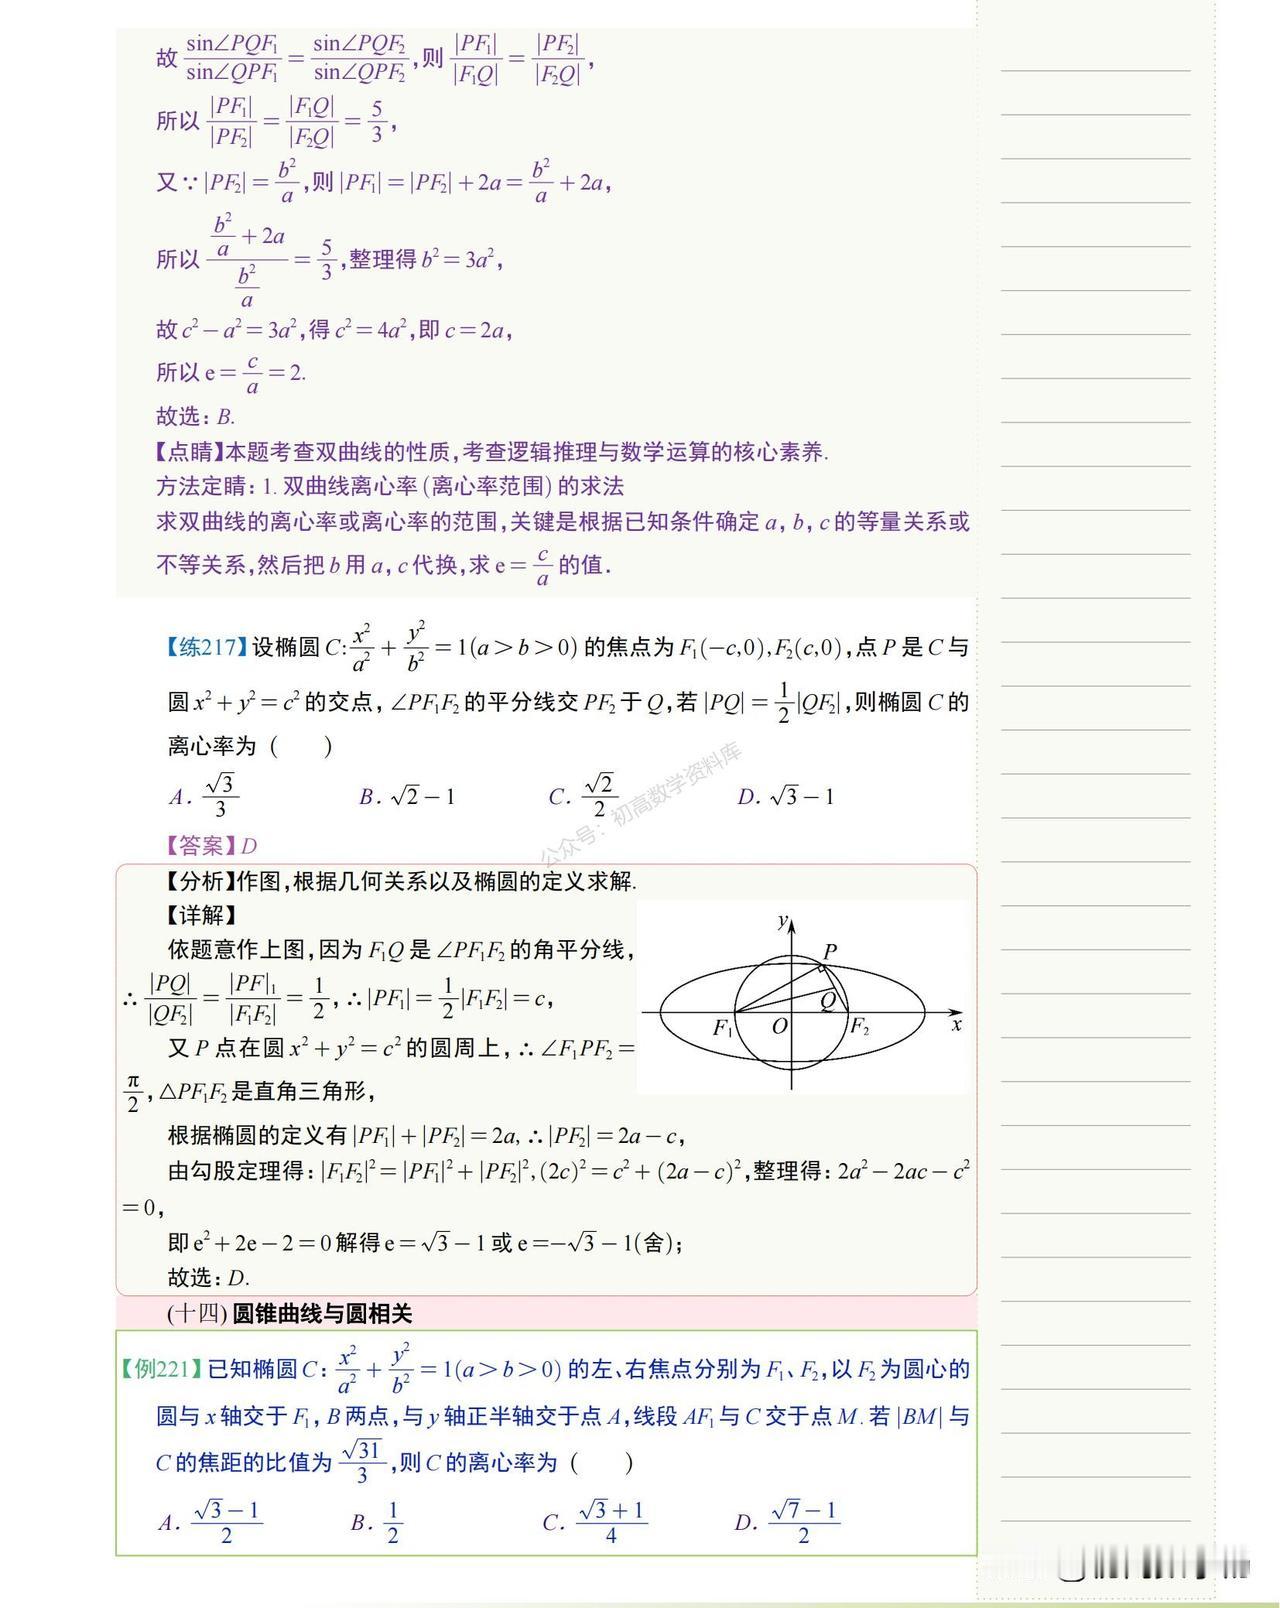 故 sin∠PQF₁/sin∠QPF₁ = sin∠PQF₂/sin∠QPF₂,则 |PF₁|/|F₁Q| = |PF₂|/|F₂Q|,
所以 |PF₁|/|PF₂| = |F₁Q|/|F₂Q| = 5/3,
又∵|PF₂| = b²/a,则|PF₁| = |PF₂| + 2a = b²/a + 2a,
所以 (b²/a + 2a)/(b²/a) = 5/3,整理得 b² = 3a²,
故 c² − a² = 3a²,得 c² = 4a²,即 c = 2a,
所以 e = c/a = 2.
故选: B.
【点睛】本题考查双曲线的性质,考查逻辑推理与数学运算的核心素养.
方法定睛: 1. 双曲线离心率 (离心率范围) 的求法
求双曲线的离心率或离心率的范围,关键是根据已知条件确定 a, b, c 的等量关系或
不等关系,然后把 b 用 a, c 代换,求 e = c/a 的值.
【练217】设椭圆 C: x²/a² + y²/b² = 1(a > b > 0) 的焦点为 F₁(−c,0), F₂(c,0),点 P 是 C 与
圆 x² + y² = c² 的交点, ∠PF₁F₂ 的平分线交 PF₂ 于 Q,若 |PQ| = 1/2|QF₂|,则椭圆 C 的
离心率为 (  )
A. √3/3 B. √2 − 1 C. √2/2 D. √3 − 1
公众号: 初高数学资料库
【答案】D
【分析】作图,根据几何关系以及椭圆的定义求解.
【详解】
依题意作上图,因为 F₁Q 是 ∠PF₁F₂ 的角平分线,
∴ |PQ|/|QF₂| = |PF|₁/|F₁F₂| = 1/2, ∴|PF₁| = 1/2|F₁F₂| = c,
又 P 点在圆 x² + y² = c² 的圆周上, ∴ ∠F₁PF₂ =
π/2, △PF₁F₂ 是直角三角形,
y
P
Q
F₁
O
F₂
x
根据椭圆的定义有 |PF₁| + |PF₂| = 2a, ∴|PF₂| = 2a − c,
由勾股定理得: |F₁F₂|² = |PF₁|² + |PF₂|², (2c)² = c² + (2a − c)²,整理得: 2a² − 2ac − c²
= 0,
即 e² + 2e − 2 = 0 解得 e = √3 − 1 或 e = −√3 − 1(舍);
故选: D.
(十四) 圆锥曲线与圆相关
【例221】已知椭圆 C: x²/a² + y²/b² = 1(a > b > 0) 的左、右焦点分别为 F₁、F₂,以 F₂ 为圆心的
圆与 x 轴交于 F₁, B 两点,与 y 轴正半轴交于点 A,线段 AF₁ 与 C 交于点 M. 若 |BM| 与
C 的焦距的比值为 √31/3,则 C 的离心率为 (  )
A. (√3 − 1)/2 B. 1/2 C. (√3 + 1)/4 D. (√7 − 1)/2